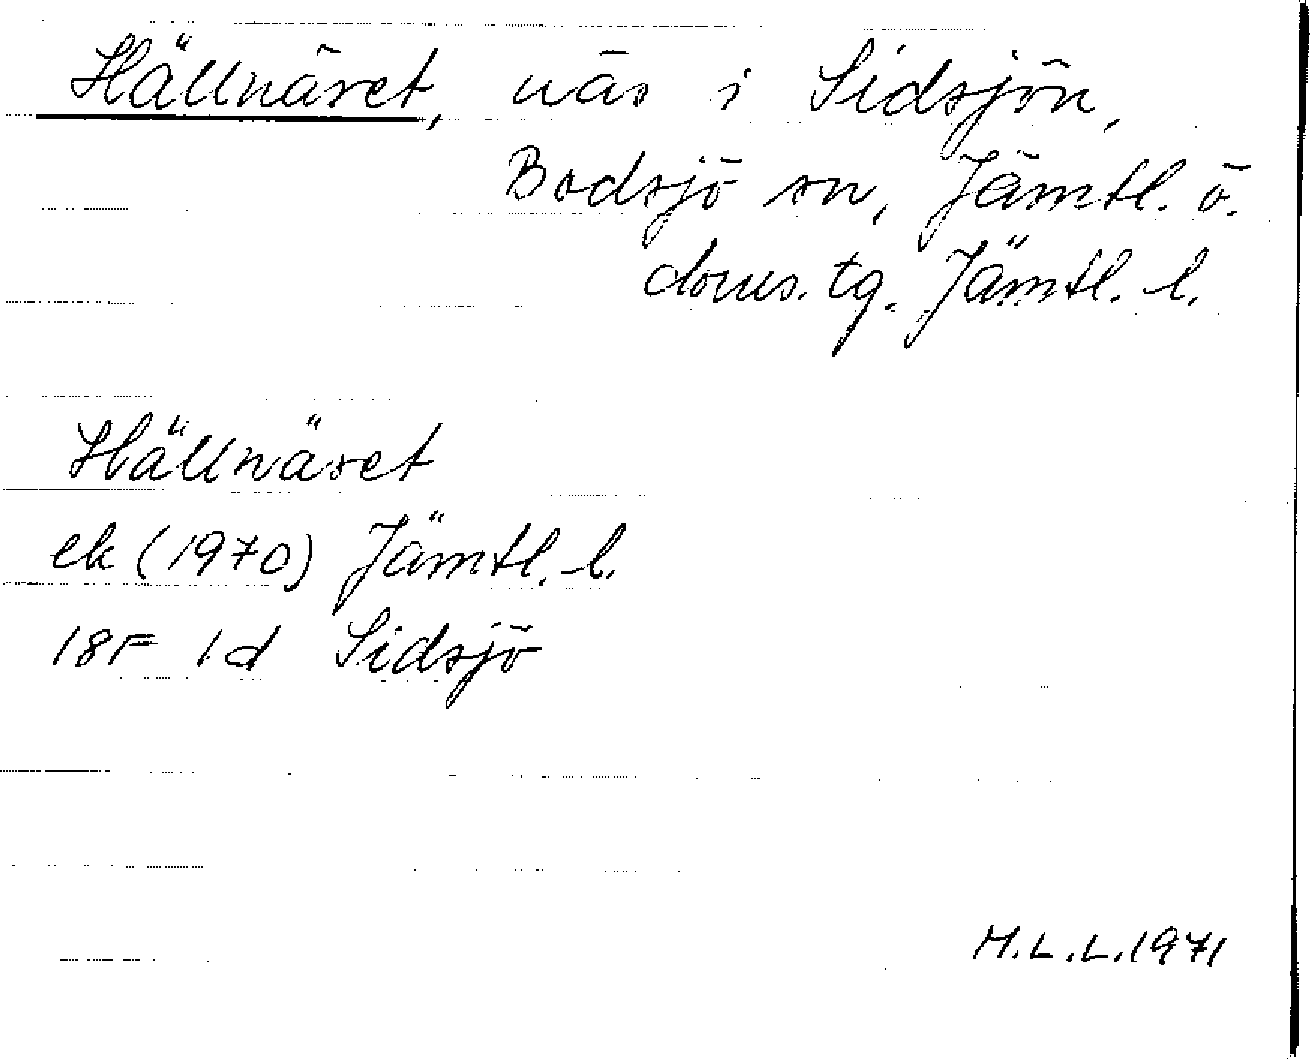 Hällnäset, näs i Sidsjön,
Bodsjö sn, Jämtl. ö.
doms. tg. Jämtl. l.
Hällnäset
ek (1970) Jämtl. l.
18F 1d Sidsjö
M.L.L. 1971